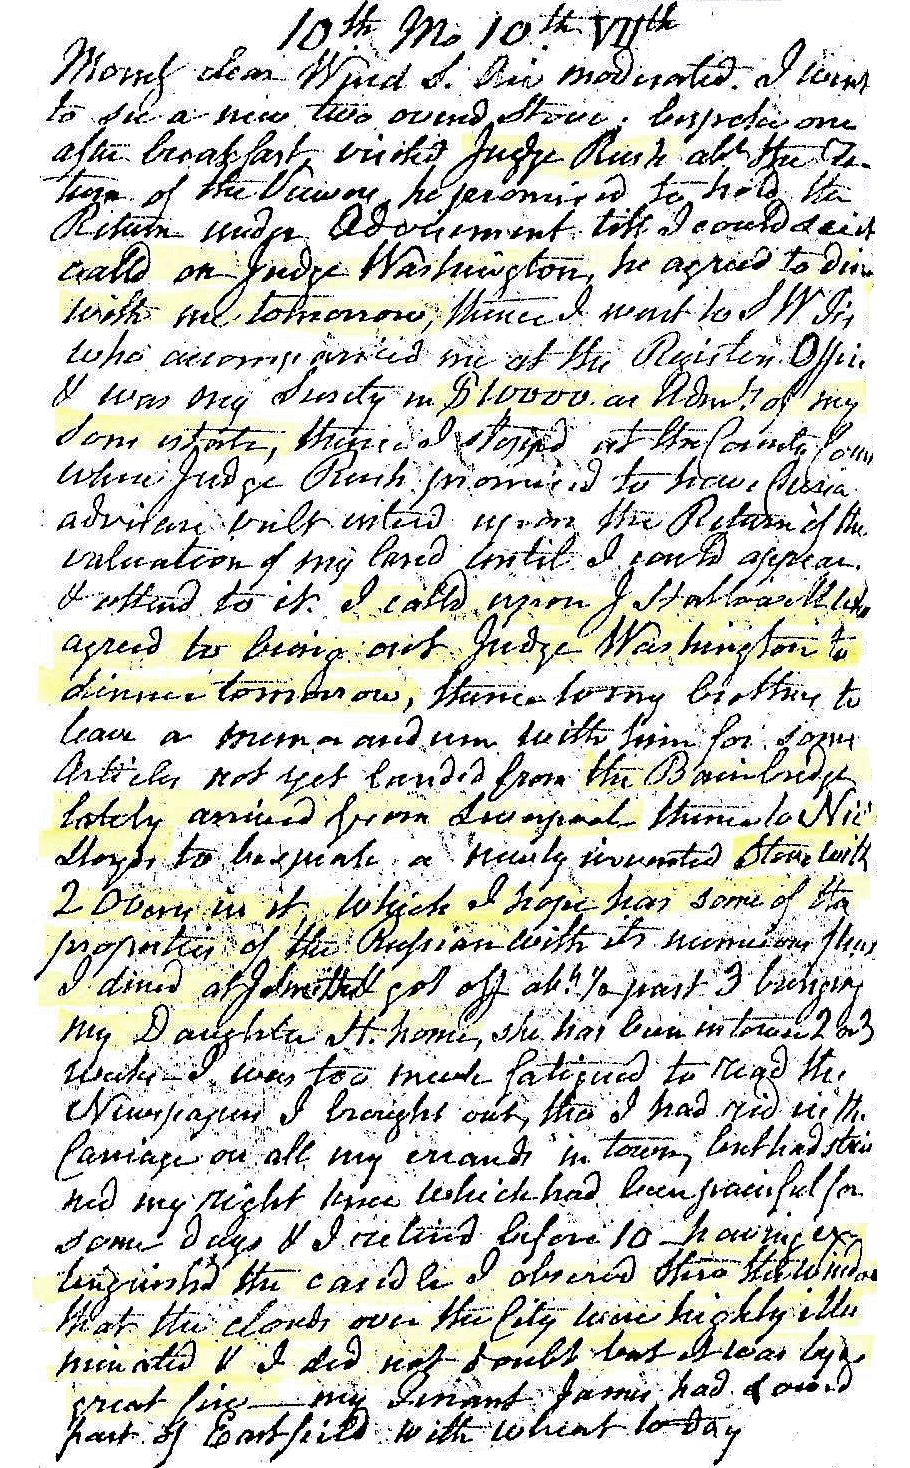 10th Mo 10th VIIth
Morng clear Wind S. Air moderated. I went
to see a new two ovend Stove; bespoke one
after breakfast, visited Judge Rush abt the Re-
turn of the Viewers, he promised to hold the
Return under Advisement till I could see it
calld on Judge Washington, he agreed to dine
with me tomorrow, thence I went to S W Fis
who accompanied me at the Registers Office
& was my Surety in $10000. as Admr. of my
Sons estate, thence I stopd at the County Court
where Judge Rush promised to have Curia
advisare vult enterd upon the Return of the
valuation of my land until I could appear
& attend to it. I calld upon J who
agreed to bring out Judge Washington to
dinner tomorrow, thence to my brothers to
leave a memorandum with him for some
Articles not yet landed from the Bainbridge
lately arrived from Liverpool thence to Nic
Lloyds to bespeak a newly invented Stove with
2 Ovens in it, which I hope has some of the
properties of the Russian with its numerous flues
I dined at J Smiths & got off abt. ½ past 3 bringing
my Daughter St. home, she has been in town 2 or 3
weeks - I was too much fatigued to read the
Newspapers I brought out, tho I had rid in the
Carriage on all my errands in town, but had strai
ned my right knee which had been painful for
some days & I retired before 10 - having ex-
tinguishd the candle I observed thro the window
that the clouds over the City were highly illu
minated & I did not doubt but it was by a
great fire — my Tenant James had sowed
part of Eastfield with wheat to day